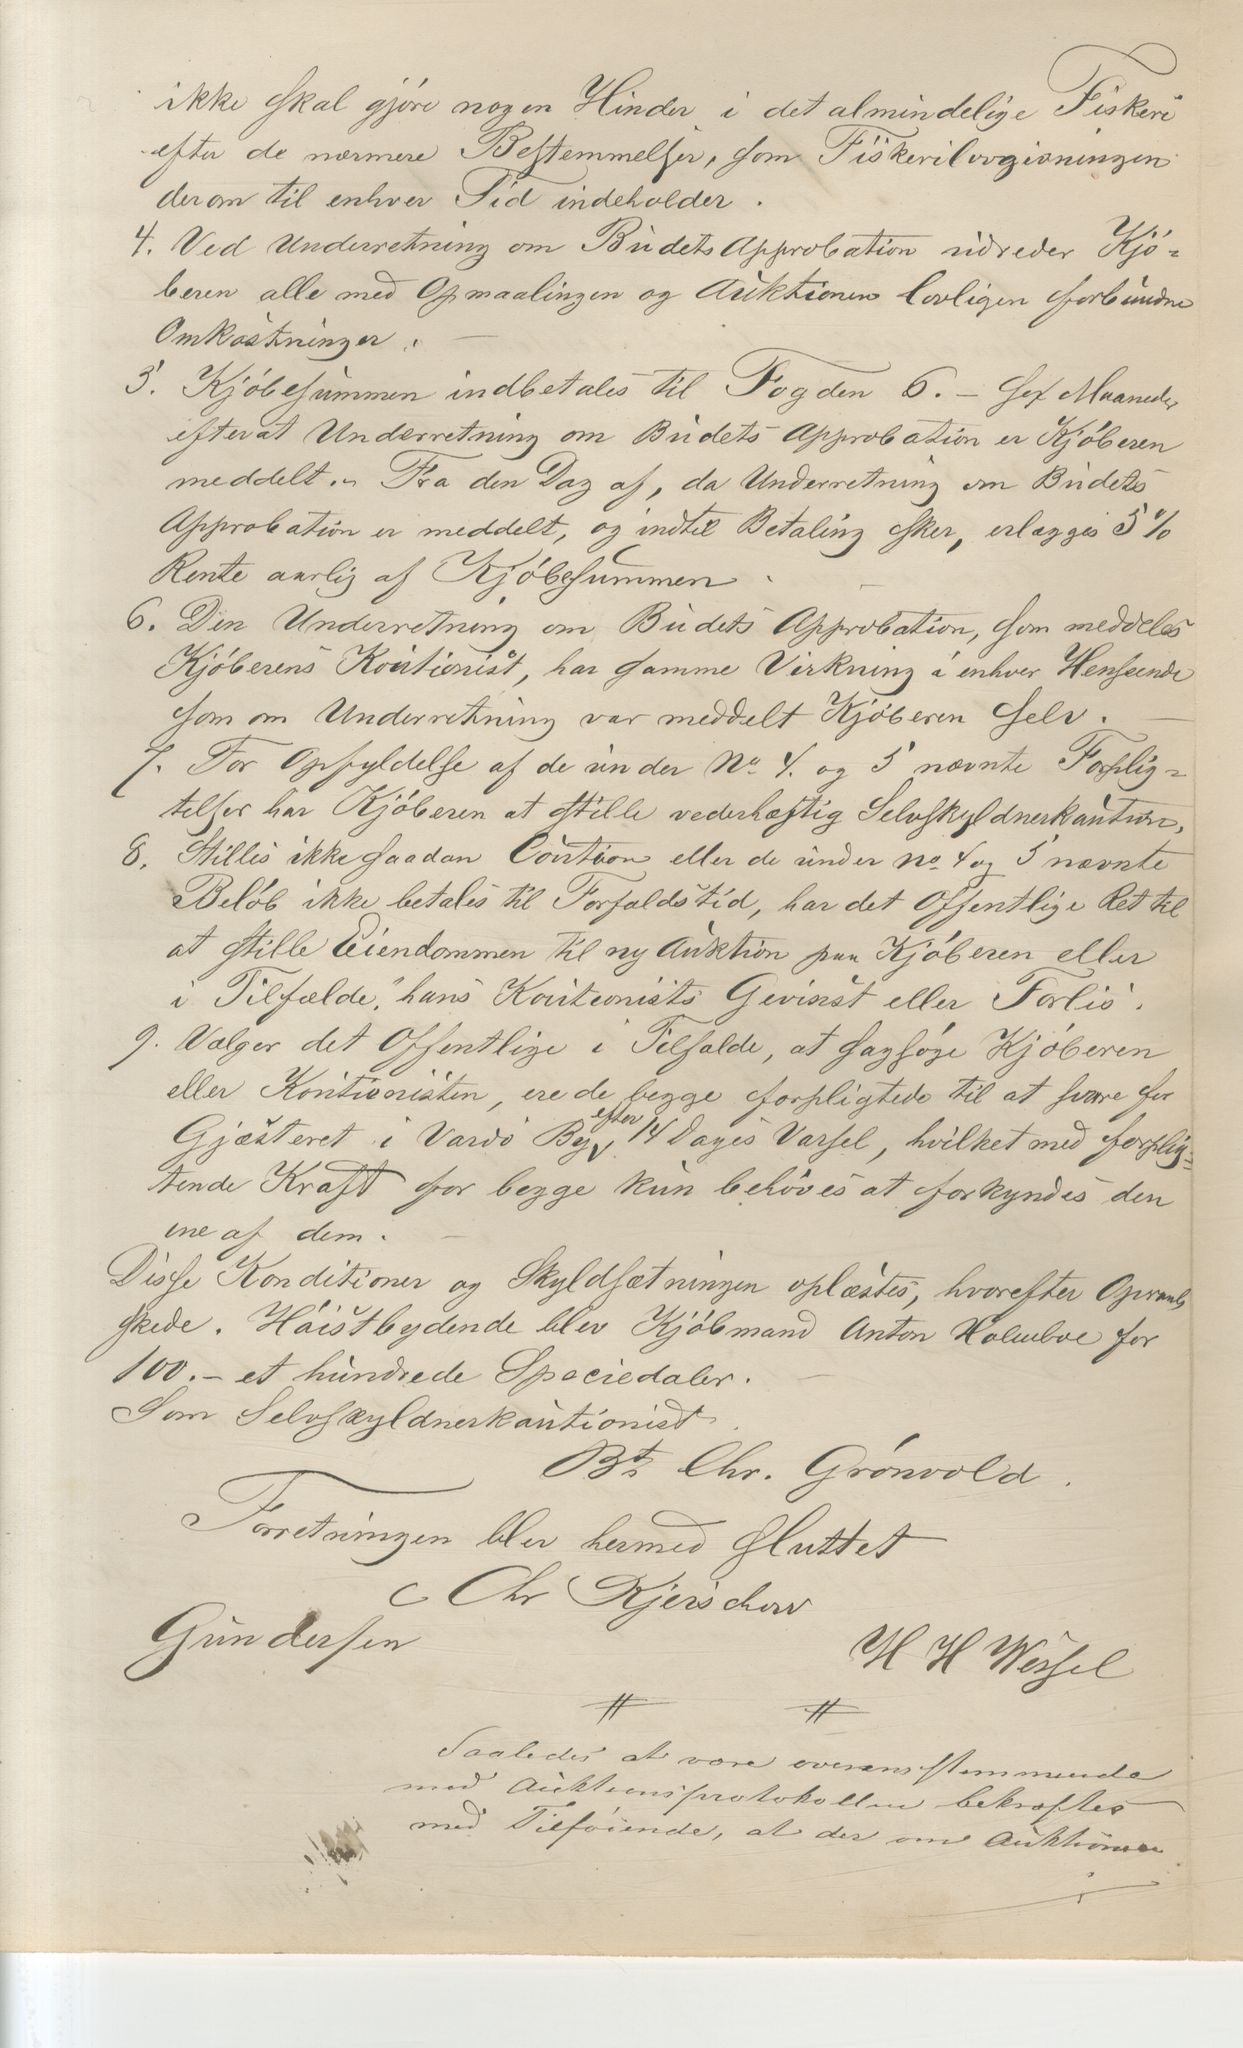 ikke skal gjöre nogen Hinder i det almindelige Fiskeri
efter de nærmere Bestemmelser, som Fiskerilovgivningen
derom til enhver Tid indeholder.
4. Ved Underretning om Budets Approbation udreder Kjö-
beren alle med Opmaalingen og Auktionen lovligen forbundne
Omkostninger. —
5. Kjöbesummen indbetales til Fogden 6. – sex Maaneder
efterat Underretning om Budets Approbation er Kjöberen
meddelt. – Fra den Dag af, da Underretning om Budets
Approbation er meddelt, og indtil Betaling sker, erlægges 5 %
Rente aarlig af Kjöbesummen.
6. Den Underretning om Budets Approbation, som meddeles
Kjöberens Kautionist, har samme Virkning i enhver Henseende
som om Underretning var meddelt Kjöberen selv. —
7. For Opfyldelse af de under No 4. og 5 nævnte Forplig-
telser har Kjöberen at stille vederhæftig Selvskyldnerkaution.
8. Stilles ikke saadan Caution eller de under no. 4 og 5 nævnte
Belöb ikke betales til Forfaldstid, har det Offentlige Ret til
at stille Eiendommen til ny Auktion paa Kjöberen eller
i Tilfælde, hans Kautionists Gevinst eller Forlis.
9. Vælger det Offentlige i Tilfælde, at sagsöge Kjöberen
eller Kautionisten, ere de begge forpligtede til at svare for
Gjæsteret i Vardö By efter 14 Dages Varsel, hvilket med forplig-
tende Kraft for begge kun behöves at forkyndes den
ene af dem. —
Disse Konditioner og Skyldsætningen oplæstes, hvorefter Opraab
skede. Höistbydende blev Kjöbmand Anton Holmboe for
100. – et hundrede Speciedaler. —
Som Selvskyldnerkautionist.
Bt. Chr. Grönvold.
Forretningen blev hermed sluttet
Chr Kjerschow
Gundersen
H H Wessel
Saaledes at være overensstemmende
med Auktionsprotokollen bekræftes
med Tilföiende, at der om Auktionen